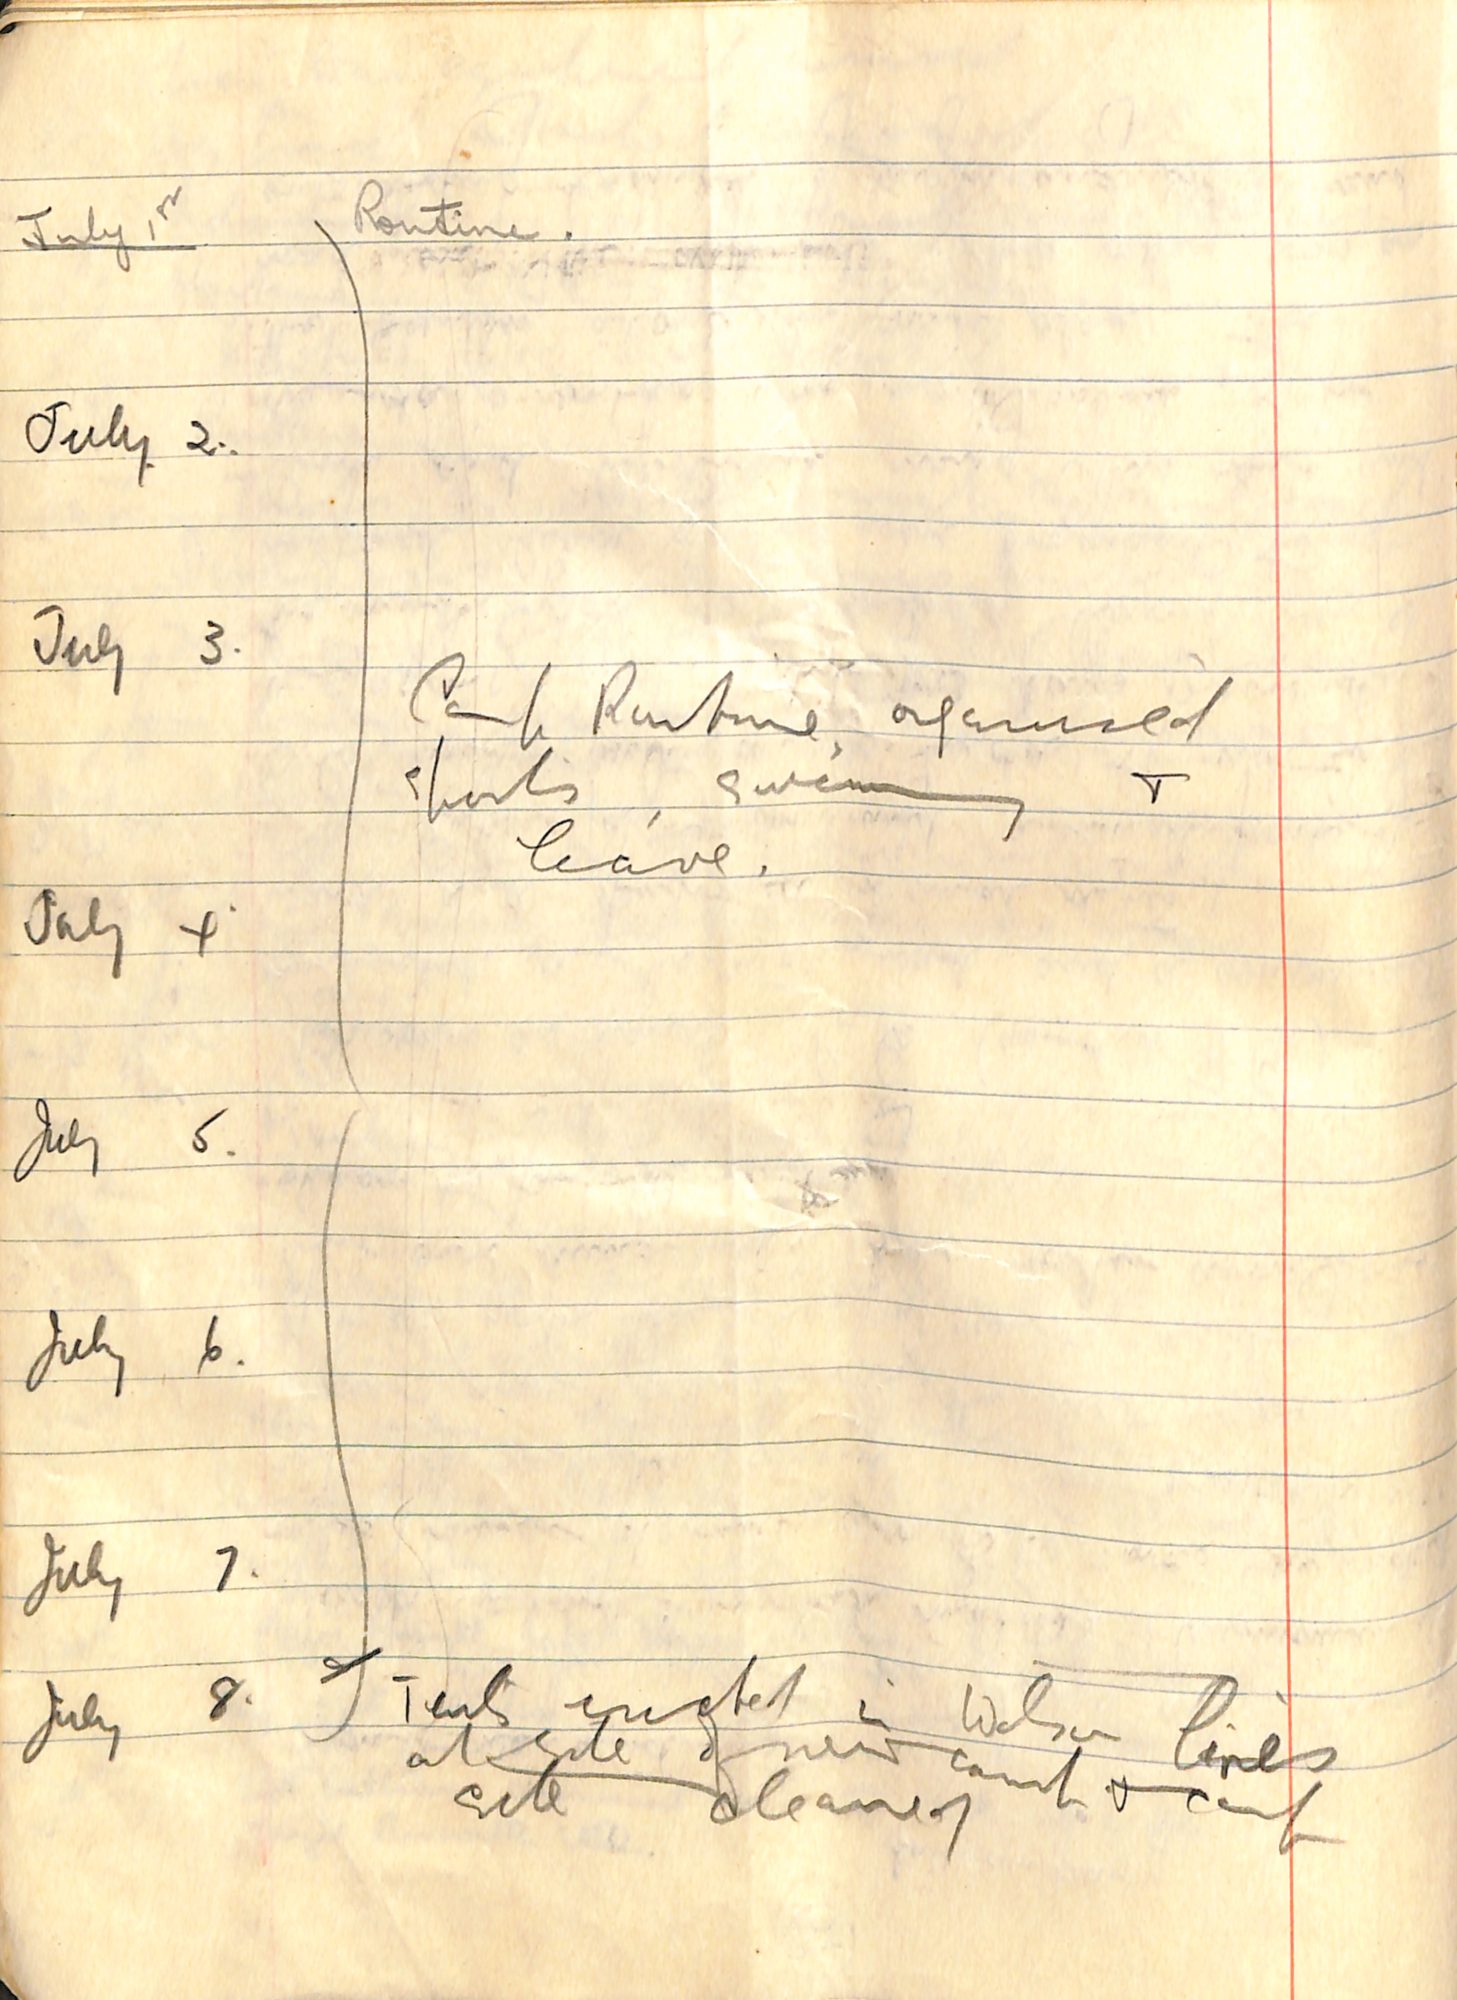 July 1st Routine.
July 2.
July 3.
Camp Routine, organised
sports, swimming &
leave.
July 4
July 5.
July 6.
July 7.
July 8. Tents erected in lines
at site of new camp & camp
site cleaned